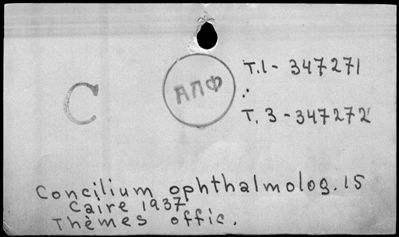 T.1 - 347271
C
АПФ
T. 3 - 347272
Concilium ophthalmolog. 15
Caire 1937
Thèmes offic.